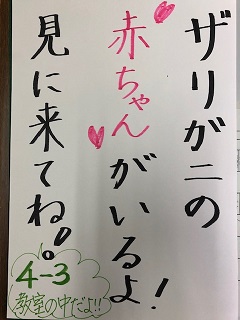 ザリガニの
赤ちゃんがいるよ!
見に来てね。
4-3
教室の中だよ!!